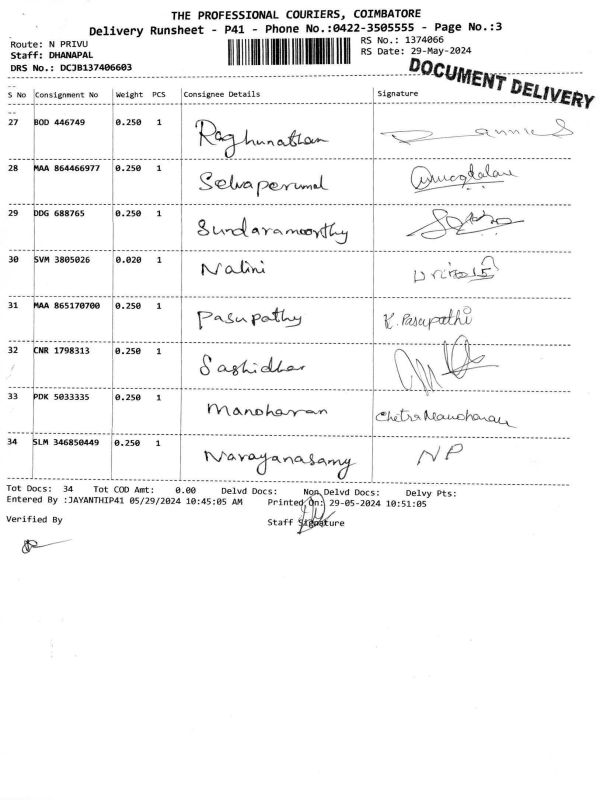 THE PROFESSIONAL COURIERS, COIMBATORE
Delivery Runsheet - P41 - Phone No.:0422-3505555 - Page No.:3
Route: N PRIVU RS No.: 1374066
Staff: DHANAPAL RS Date: 29-May-2024
DRS No.: DCJB137406603
DOCUMENT DELIVERY
S No Consignment No Weight PCS Consignee Details Signature
27 BOD 446749 0.250 1 Raghunathan
28 MAA 864466977 0.250 1 Selvaperumal
29 DDG 688765 0.250 1 Sundaramoorthy
30 SVM 3805026 0.020 1 Nalini
31 MAA 865170700 0.250 1 Pasupathy K. Pasupathi
32 CNR 1798313 0.250 1 Sashidhar
33 PDK 5033335 0.250 1 Manoharan Chetra Manoharan
34 SLM 346850449 0.250 1 Narayanasamy NP
Tot Docs: 34 Tot COD Amt: 0.00 Delvd Docs: Non Delvd Docs: Delvy Pts:
Entered By :JAYANTHIP41 05/29/2024 10:45:05 AM Printed On: 29-05-2024 10:51:05
Verified By Staff Signature